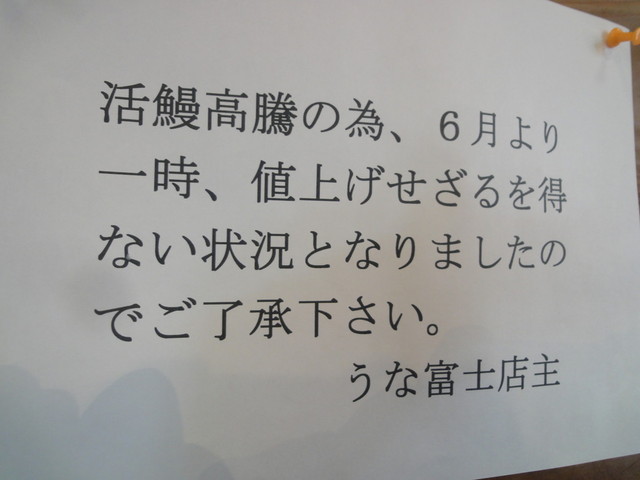 活鰻高騰の為、６月より
一時、値上げせざるを得
ない状況となりましたの
でご了承下さい。
うな富士店主